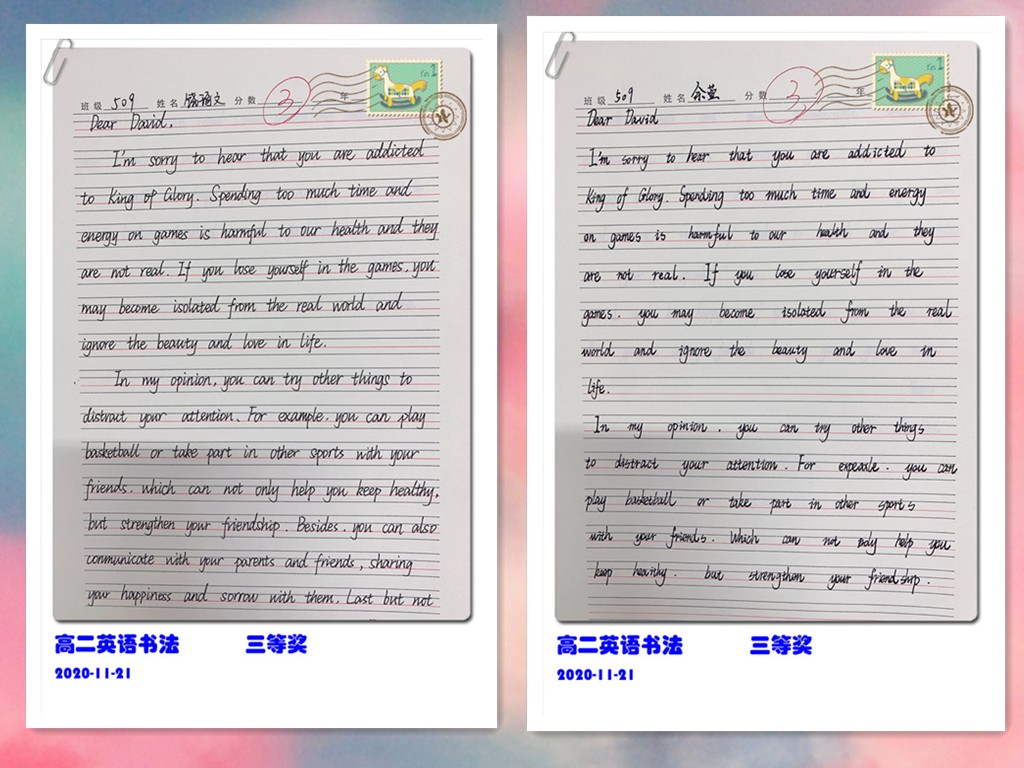 班级 509 姓名 盛涵文 分数 3 年
Dear David,
I'm sorry to hear that you are addicted
to King of Glory. Spending too much time and
energy on games is harmful to our health and they
are not real. If you lose yourself in the games, you
may become isolated from the real world and
ignore the beauty and love in life.
In my opinion, you can try other things to
distract your attention. For example, you can play
basketball or take part in other sports with your
friends. Which can not only help you keep healthy,
but strengthen your friendship. Besides, you can also
communicate with your parents and friends, sharing
your happiness and sorrow with them. Last but not
高二英语书法 三等奖
2020-11-21
班级 509 姓名 余萱 分数 3 年
Dear David
I'm sorry to hear that you are addicted to
King of Glory. Spending too much time and energy
on games is harmful to our health and they
are not real. If you lose yourself in the
games. you may become isolated from the real
world and ignore the beauty and love in
life.
In my opinion. you can try other things
to distract your attention. For expeaxle. you can
play basketball or take part in other sports
with your friends. Which can not only help you
keep healthy. but strengthen your friendship.
高二英语书法 三等奖
2020-11-21